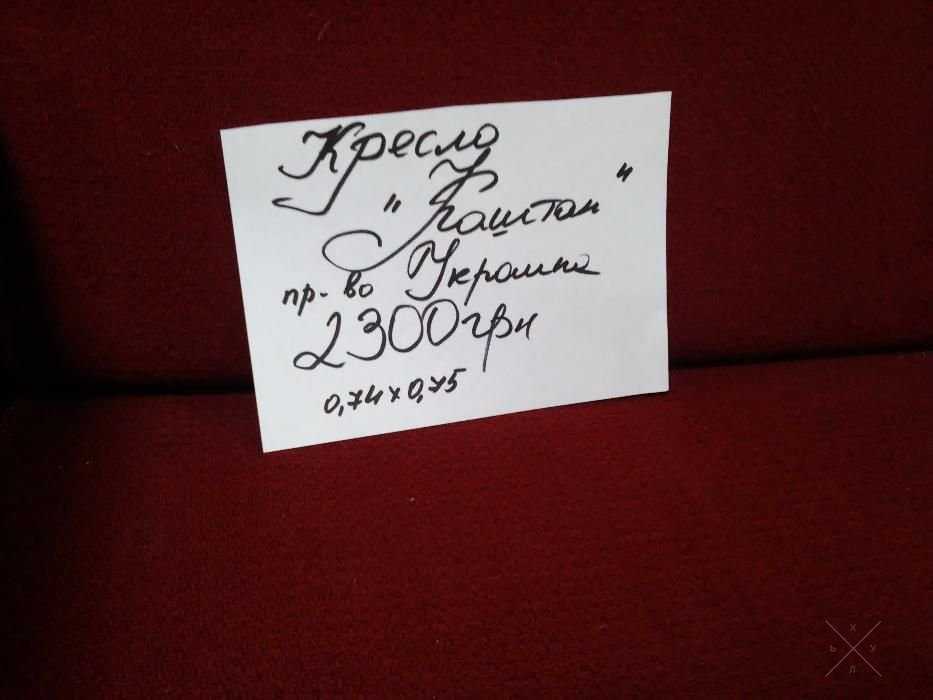 Кресло
"Каштан"
пр-во Украина
2300грн
0,74х0,75
Х
Ь У
Л